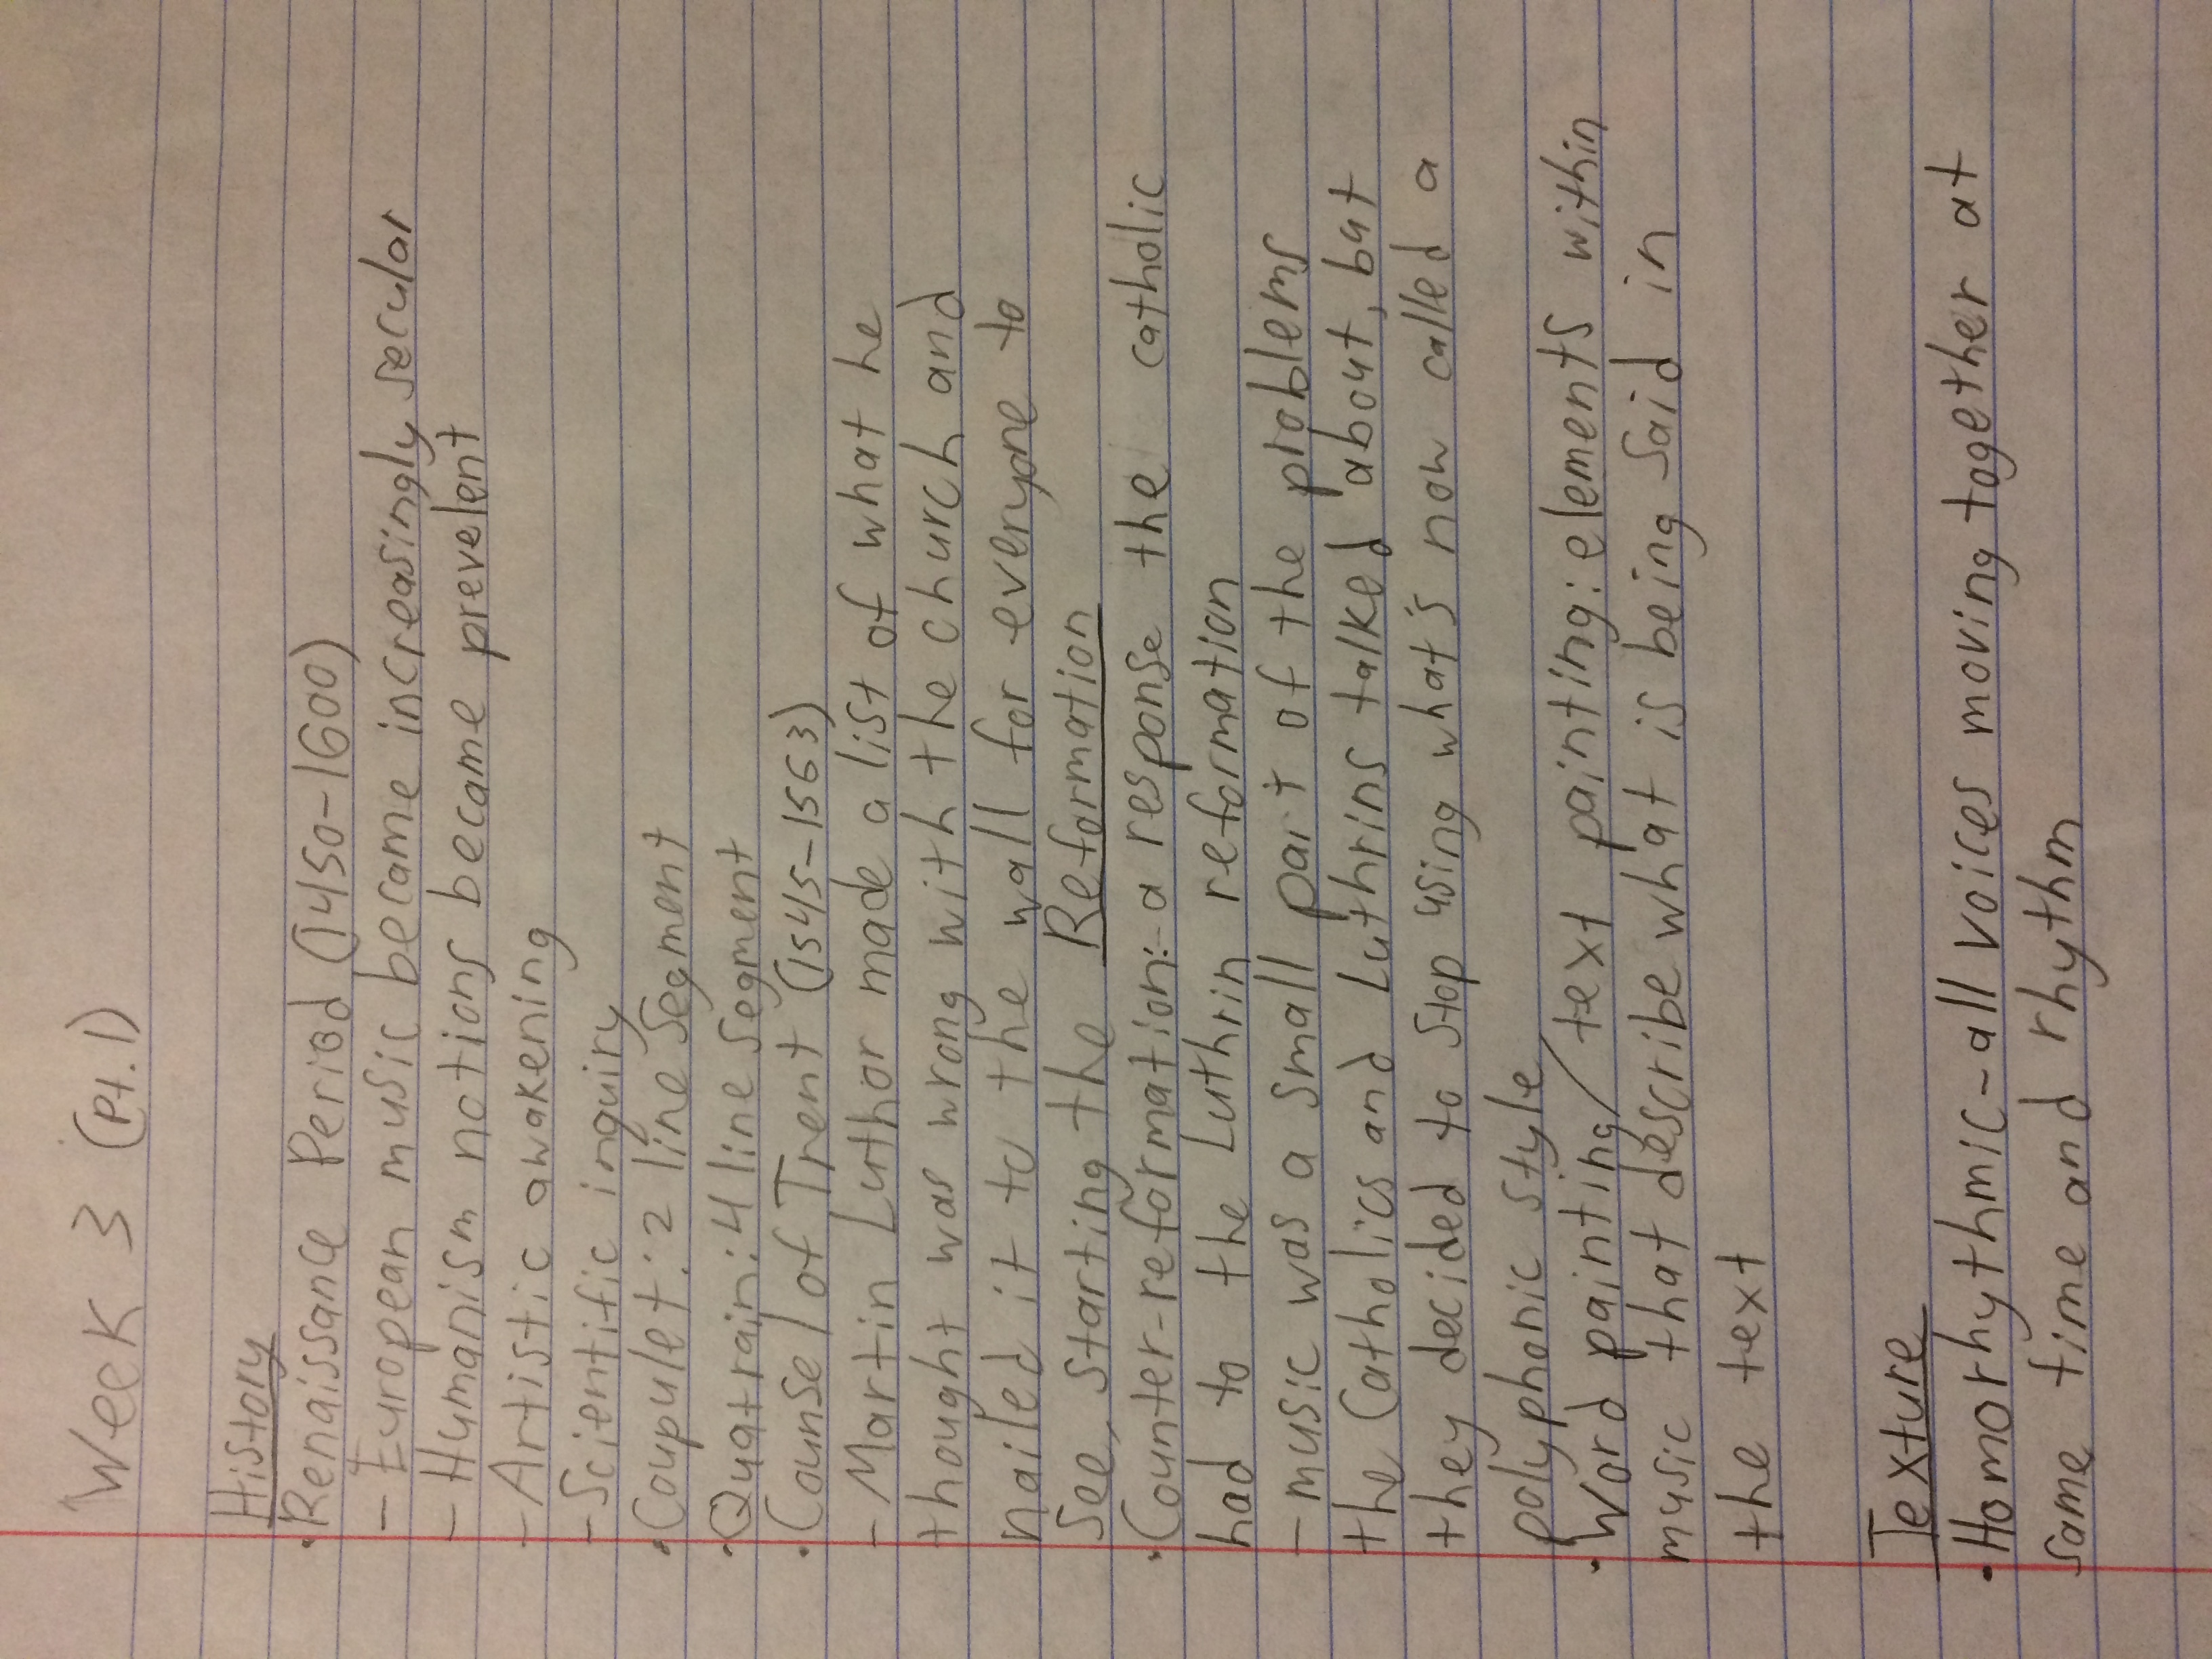 Week 3 (Pt.1)
History
• Renaissance Period (1450-1600)
- European music became increasingly secular
- Humanism notions became prevelent
- Artistic awakening
- Scientific inquiry
• Coupulet: 2 line segment
• Quatrain: 4 line segment
• Counsel of Trent (1545-1563)
- Martin Luthor made a list of what he
thought was wrong with the church and
nailed it to the wall for everyone to
see, starting the Reformation
• Counter-reformation:- a response the catholic
had to the Luthrin reformation
- music was a small part of the problems
the Catholics and Luthrins talked about, but
they decided to stop using what's now called a
polyphonic style
• Word painting/text painting: elements within
music that describe what is being said in
the text
Texture
• Homorhythmic - all voices moving together at
same time and rhythm